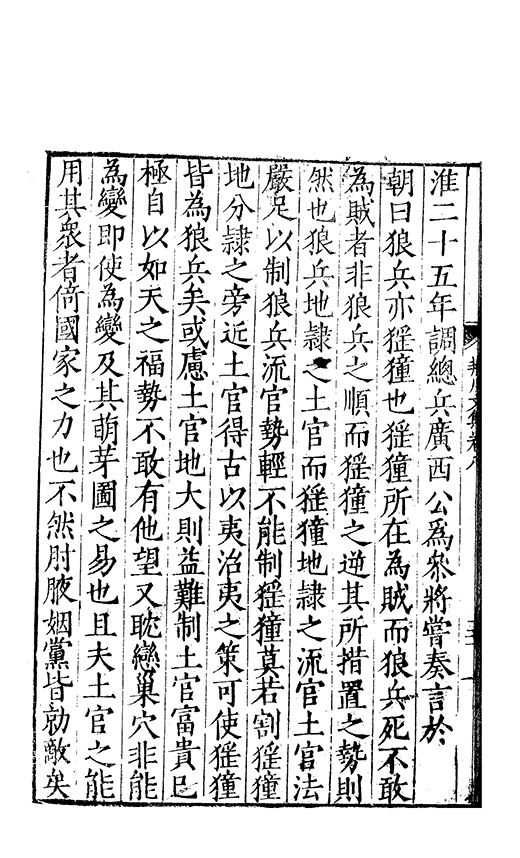 淮二十五年調總兵廣西公爲叅將嘗奏言於
朝曰狼兵亦猺獞也猺獞所在為賊而狼兵死不敢
為賊者非狼兵之順而猺獞之逆其所措置之勢則
然也狼兵地隸之土官而猺獞地隸之流官土官法
嚴足以制狼兵流官勢輕不能制猺獞莫若割猺獞
地分隸之旁近土官得古以夷治夷之策可使猺獞
皆為狼兵矣或慮土官地大則益難制土官富貴已
極自以如天之福勢不敢有他望又耽戀巢穴非能
為變即使為變及其萌芽圖之易也且夫土官之能
用其衆者倚國家之力也不然肘腋姻黨皆勍敵矣